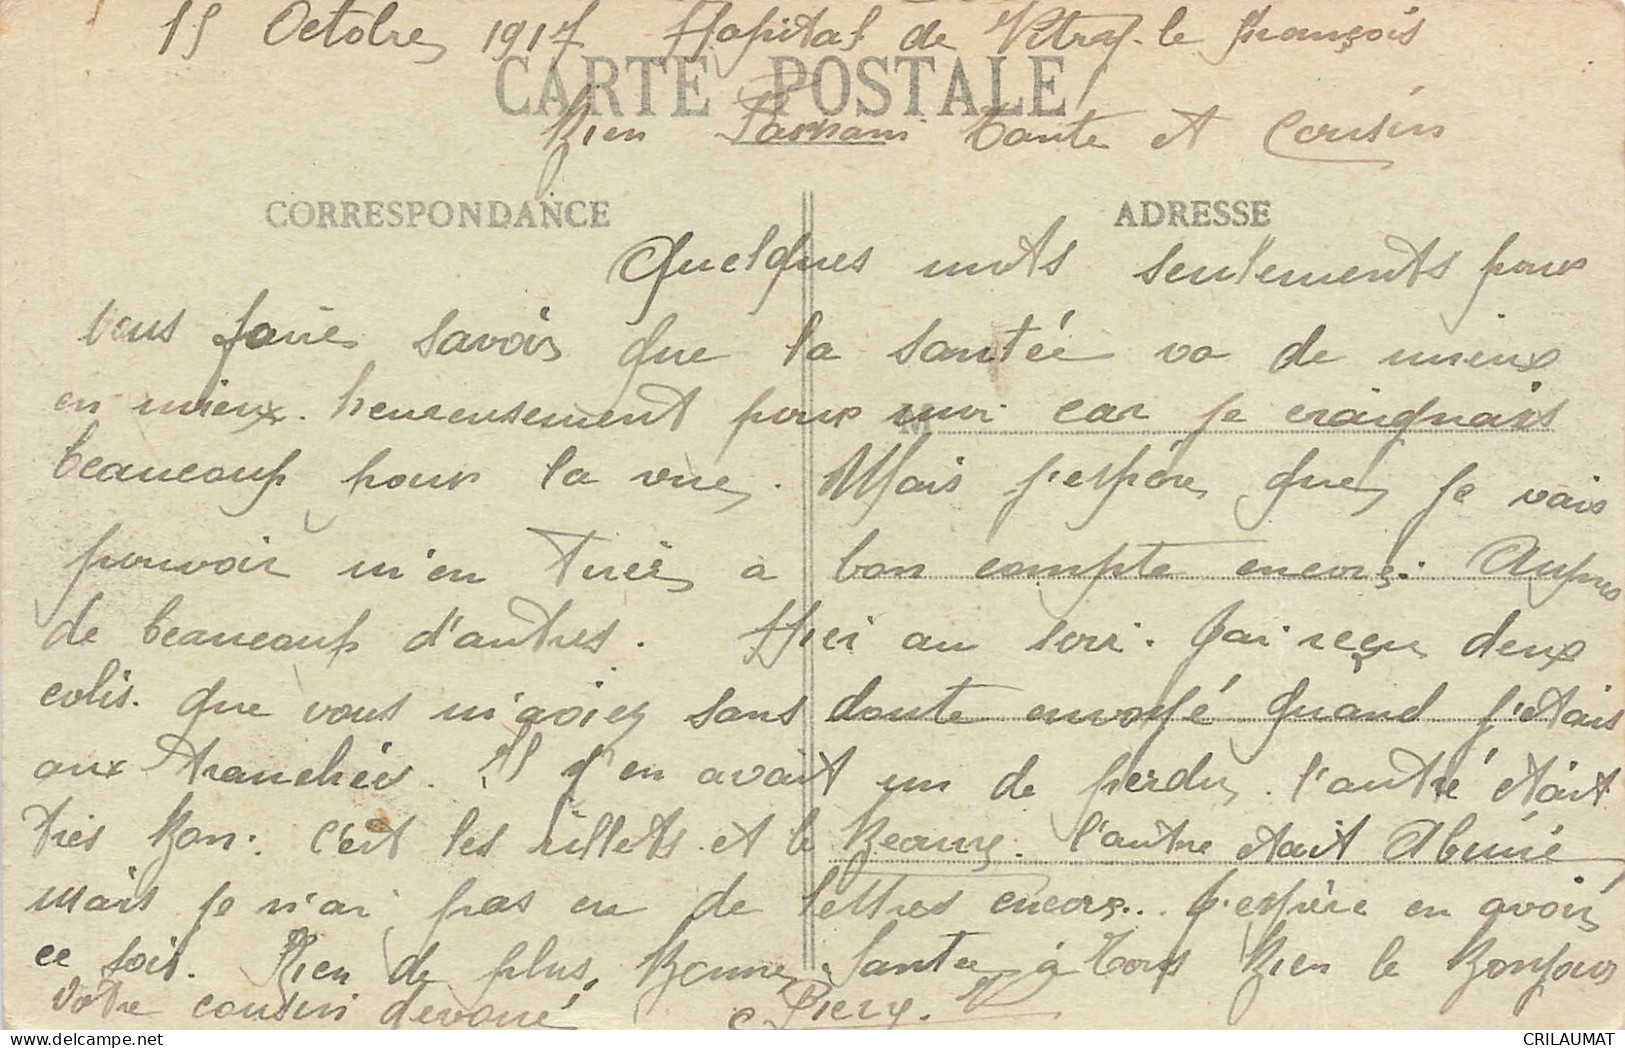 15 Octobre 1917 Hopital de Vitry-le françois
CARTE POSTALE
Bien Tante et Cousin
CORRESPONDANCE
ADRESSE
Quelques mots seulements pour
vous faire savoir que la santée va de mieux
en mieux. heureusement pour moi car je craignais
M
beaucoup pour la vue. Mais j'espère que je vais
pouvoir m'en tirer a bon compte encore. Aupres
de beaucoup d'autres. Hier au soir. J'ai reçu deux
colis. que vous m'aviez sans doute envoyé quand j'etais
aux tranchée. Il y en avait un de perdu. l'autre était
très bon. c'est les rillets et le Beurre. l'autre etait Abimé
mais je n'ai pas eu de lettres encore... J'espère en avoir
ce soir. Rien de plus, Bonne Santée à tous Bien le Bonjour
Votre cousin devoué
CRILAUMAT